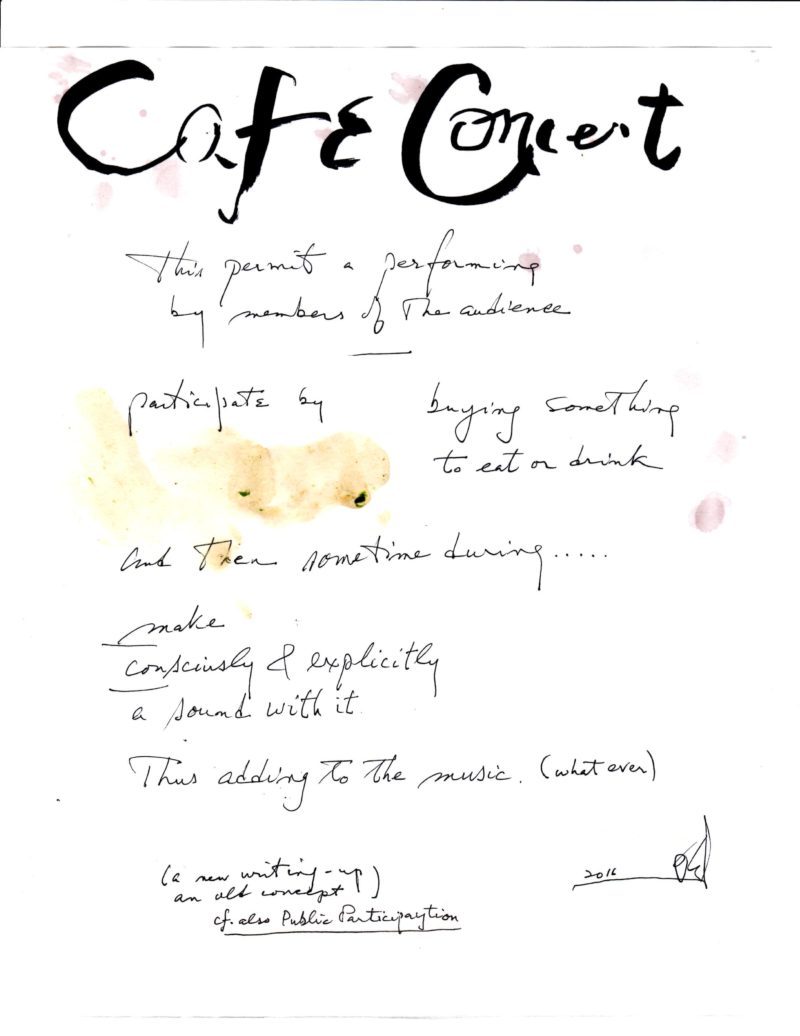 Cafe Concert
This permit a performing
by members of The audience
participate by buying something
to eat or drink
and Then sometime during.....
make
consciusly & explicitly
a sound with it
Thus adding to the music. (what ever)
(a new writing-up
an old concept)
cf. also Public Participaytion
2016